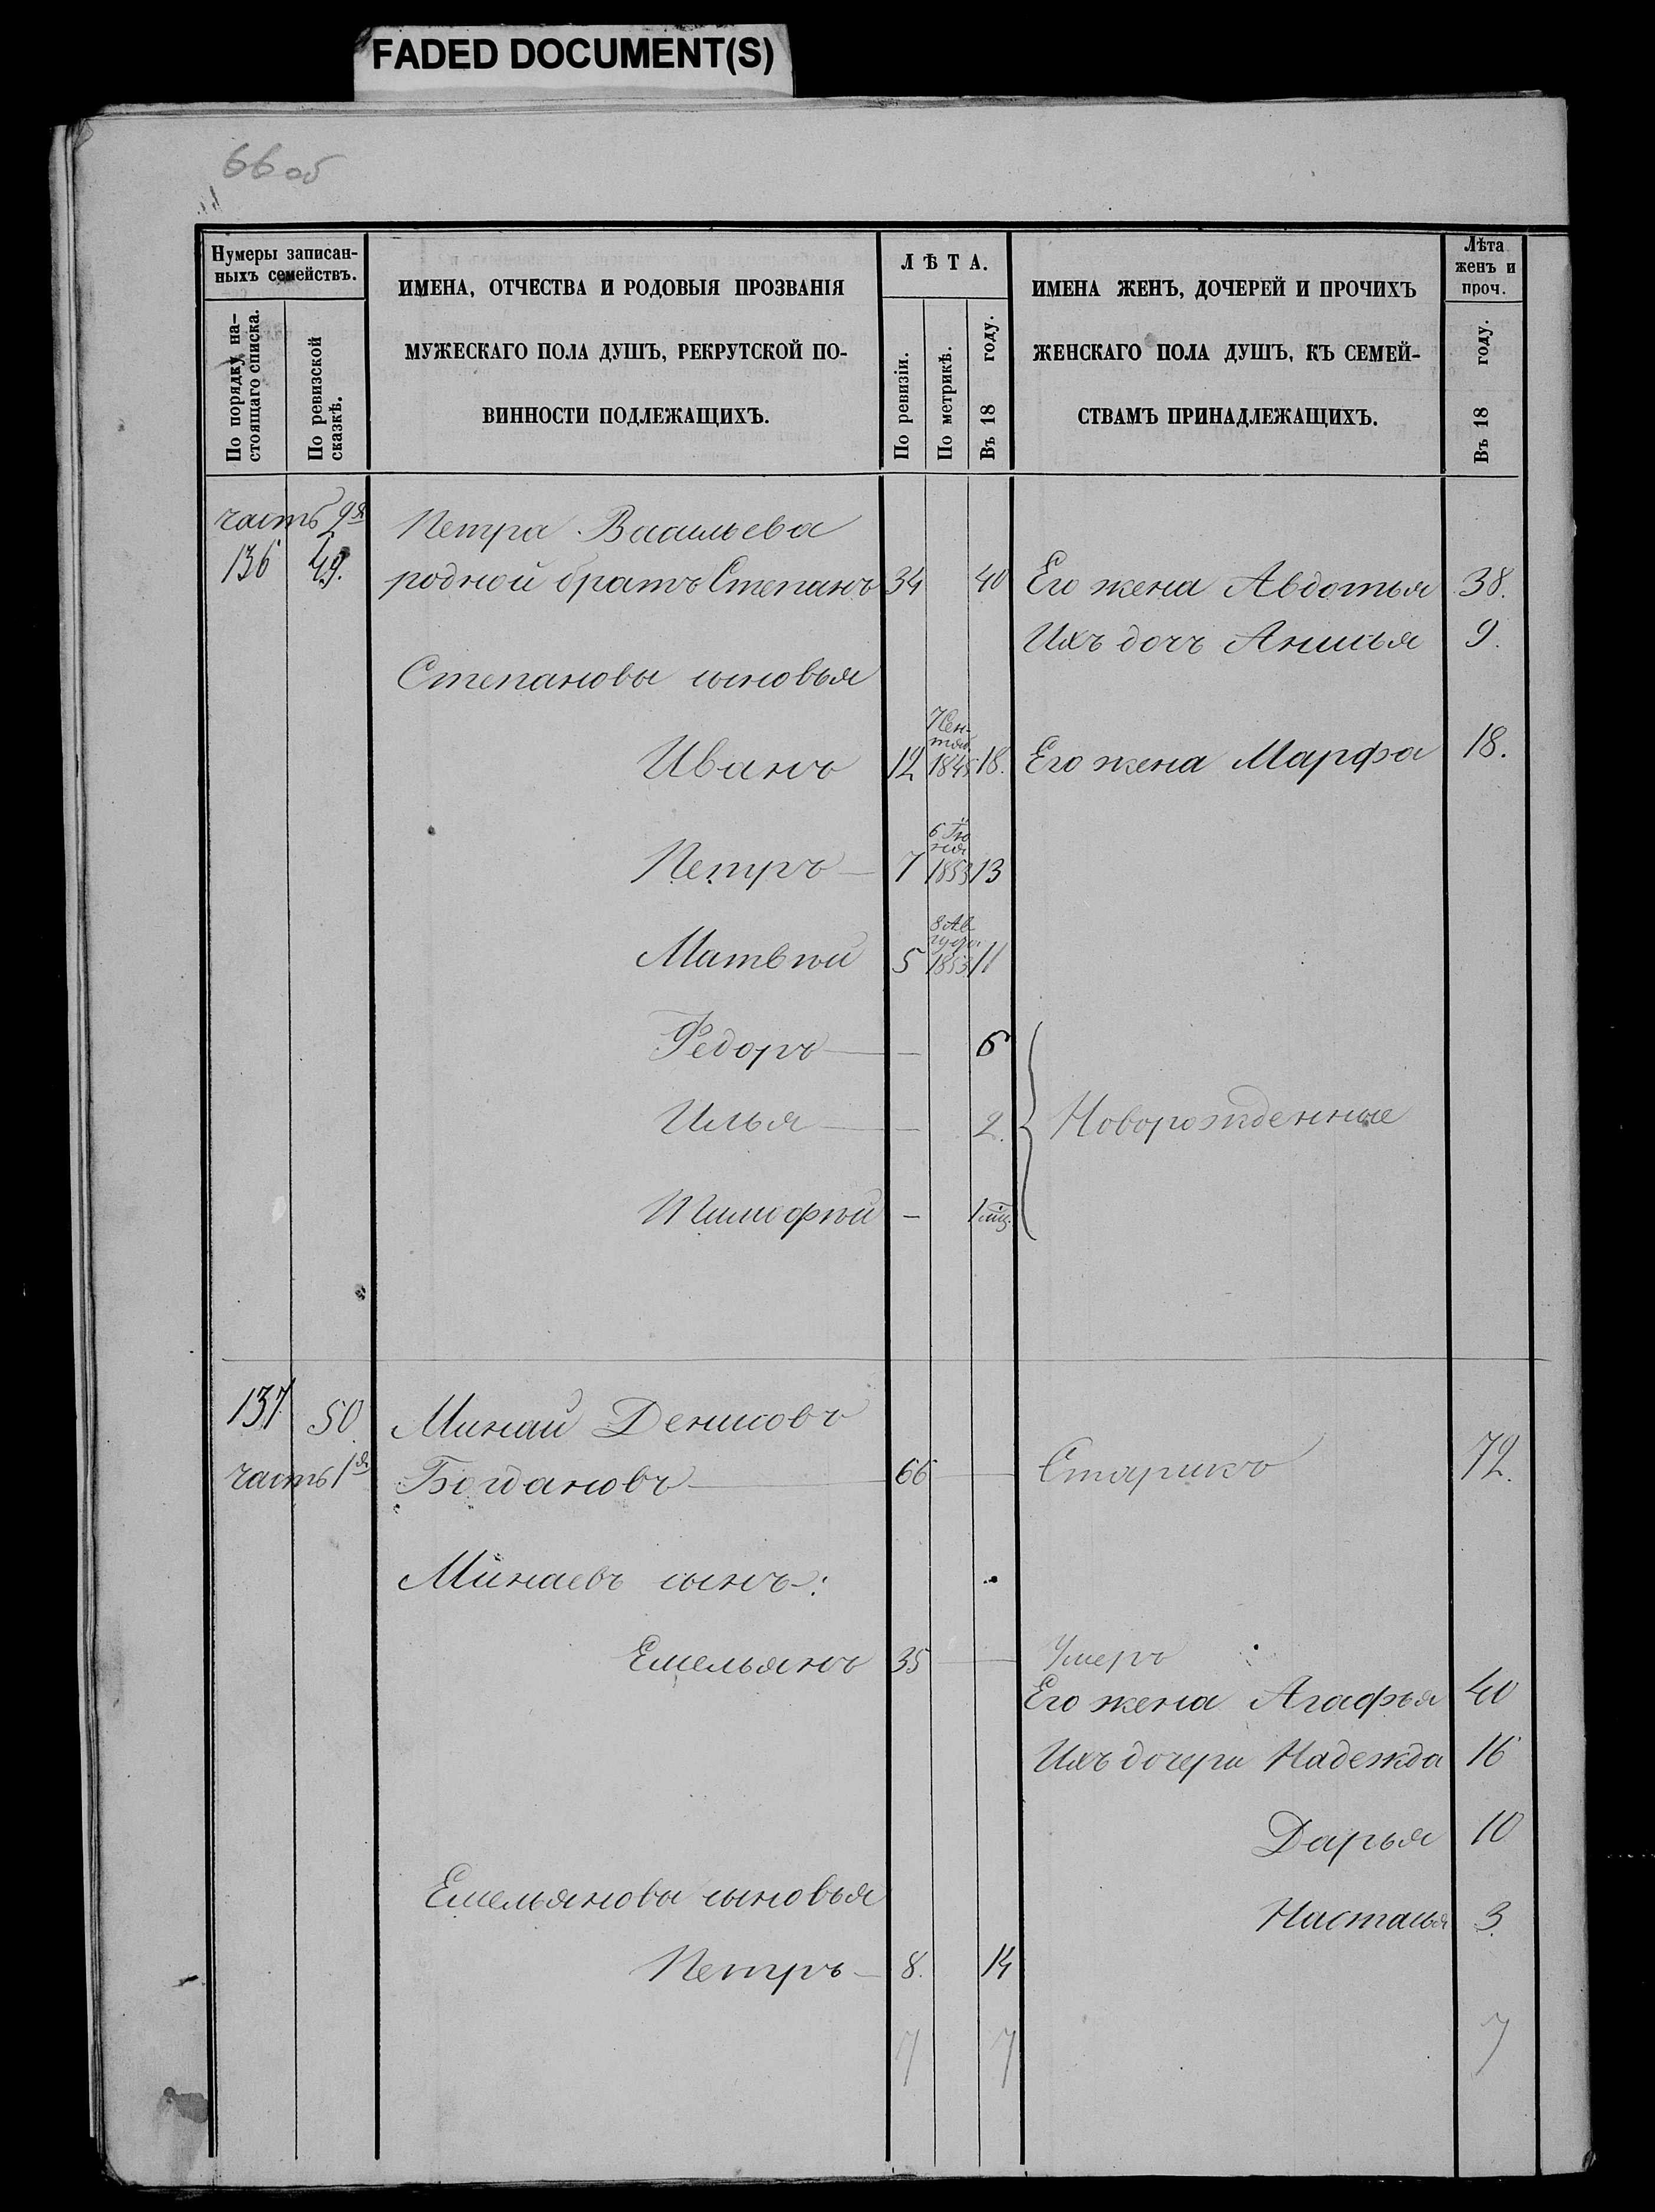 FADED DOCUMENT(S)
66 об
Нумеры записан-
ныхъ семействъ.
По порядку на-
стоящаго списка.
По ревизской
сказкѣ.
ИМЕНА, ОТЧЕСТВА И РОДОВЫЯ ПРОЗВАНІЯ
МУЖЕСКАГО ПОЛА ДУШЪ, РЕКРУТСКОЙ ПО-
ВИННОСТИ ПОДЛЕЖАЩИХЪ.
ЛѢТА.
По ревизіи.
По метрикѣ.
Въ 18 году.
ИМЕНА ЖЕНЪ, ДОЧЕРЕЙ И ПРОЧИХЪ
ЖЕНСКАГО ПОЛА ДУШЪ, КЪ СЕМЕЙ-
СТВАМЪ ПРИНАДЛЕЖАЩИХЪ.
Лѣта
женъ и
проч.
Въ 18 году.
часть Петра Васильева
136 49. родной братъ Степанъ 34 40 Его жена Авдотья 38.
Ихъ дочь Анисья 9.
Степановы сыновья
7 Сен-
тяб.
Иванъ 12 18. Его жена Марфа 18.
6 Iю
ня
Петръ 7 1853 13
8 Ав
густа
Матвѣй 5 1853 11
Федоръ — 6
Илья — 2. Новорожденные
Тимофѣй — 1 мѣс.
137 50. Минай Денисовъ
часть 1я Богдановъ 66 — Старикъ 72.
Минаевъ сынъ:
Емельянъ 35 — Умеръ
Его жена Агафья 40
Ихъ дочери Надежда 16
Дарья 10
Емельяновы сыновья
Настасья 3.
Петръ 8. 14
7 7 7